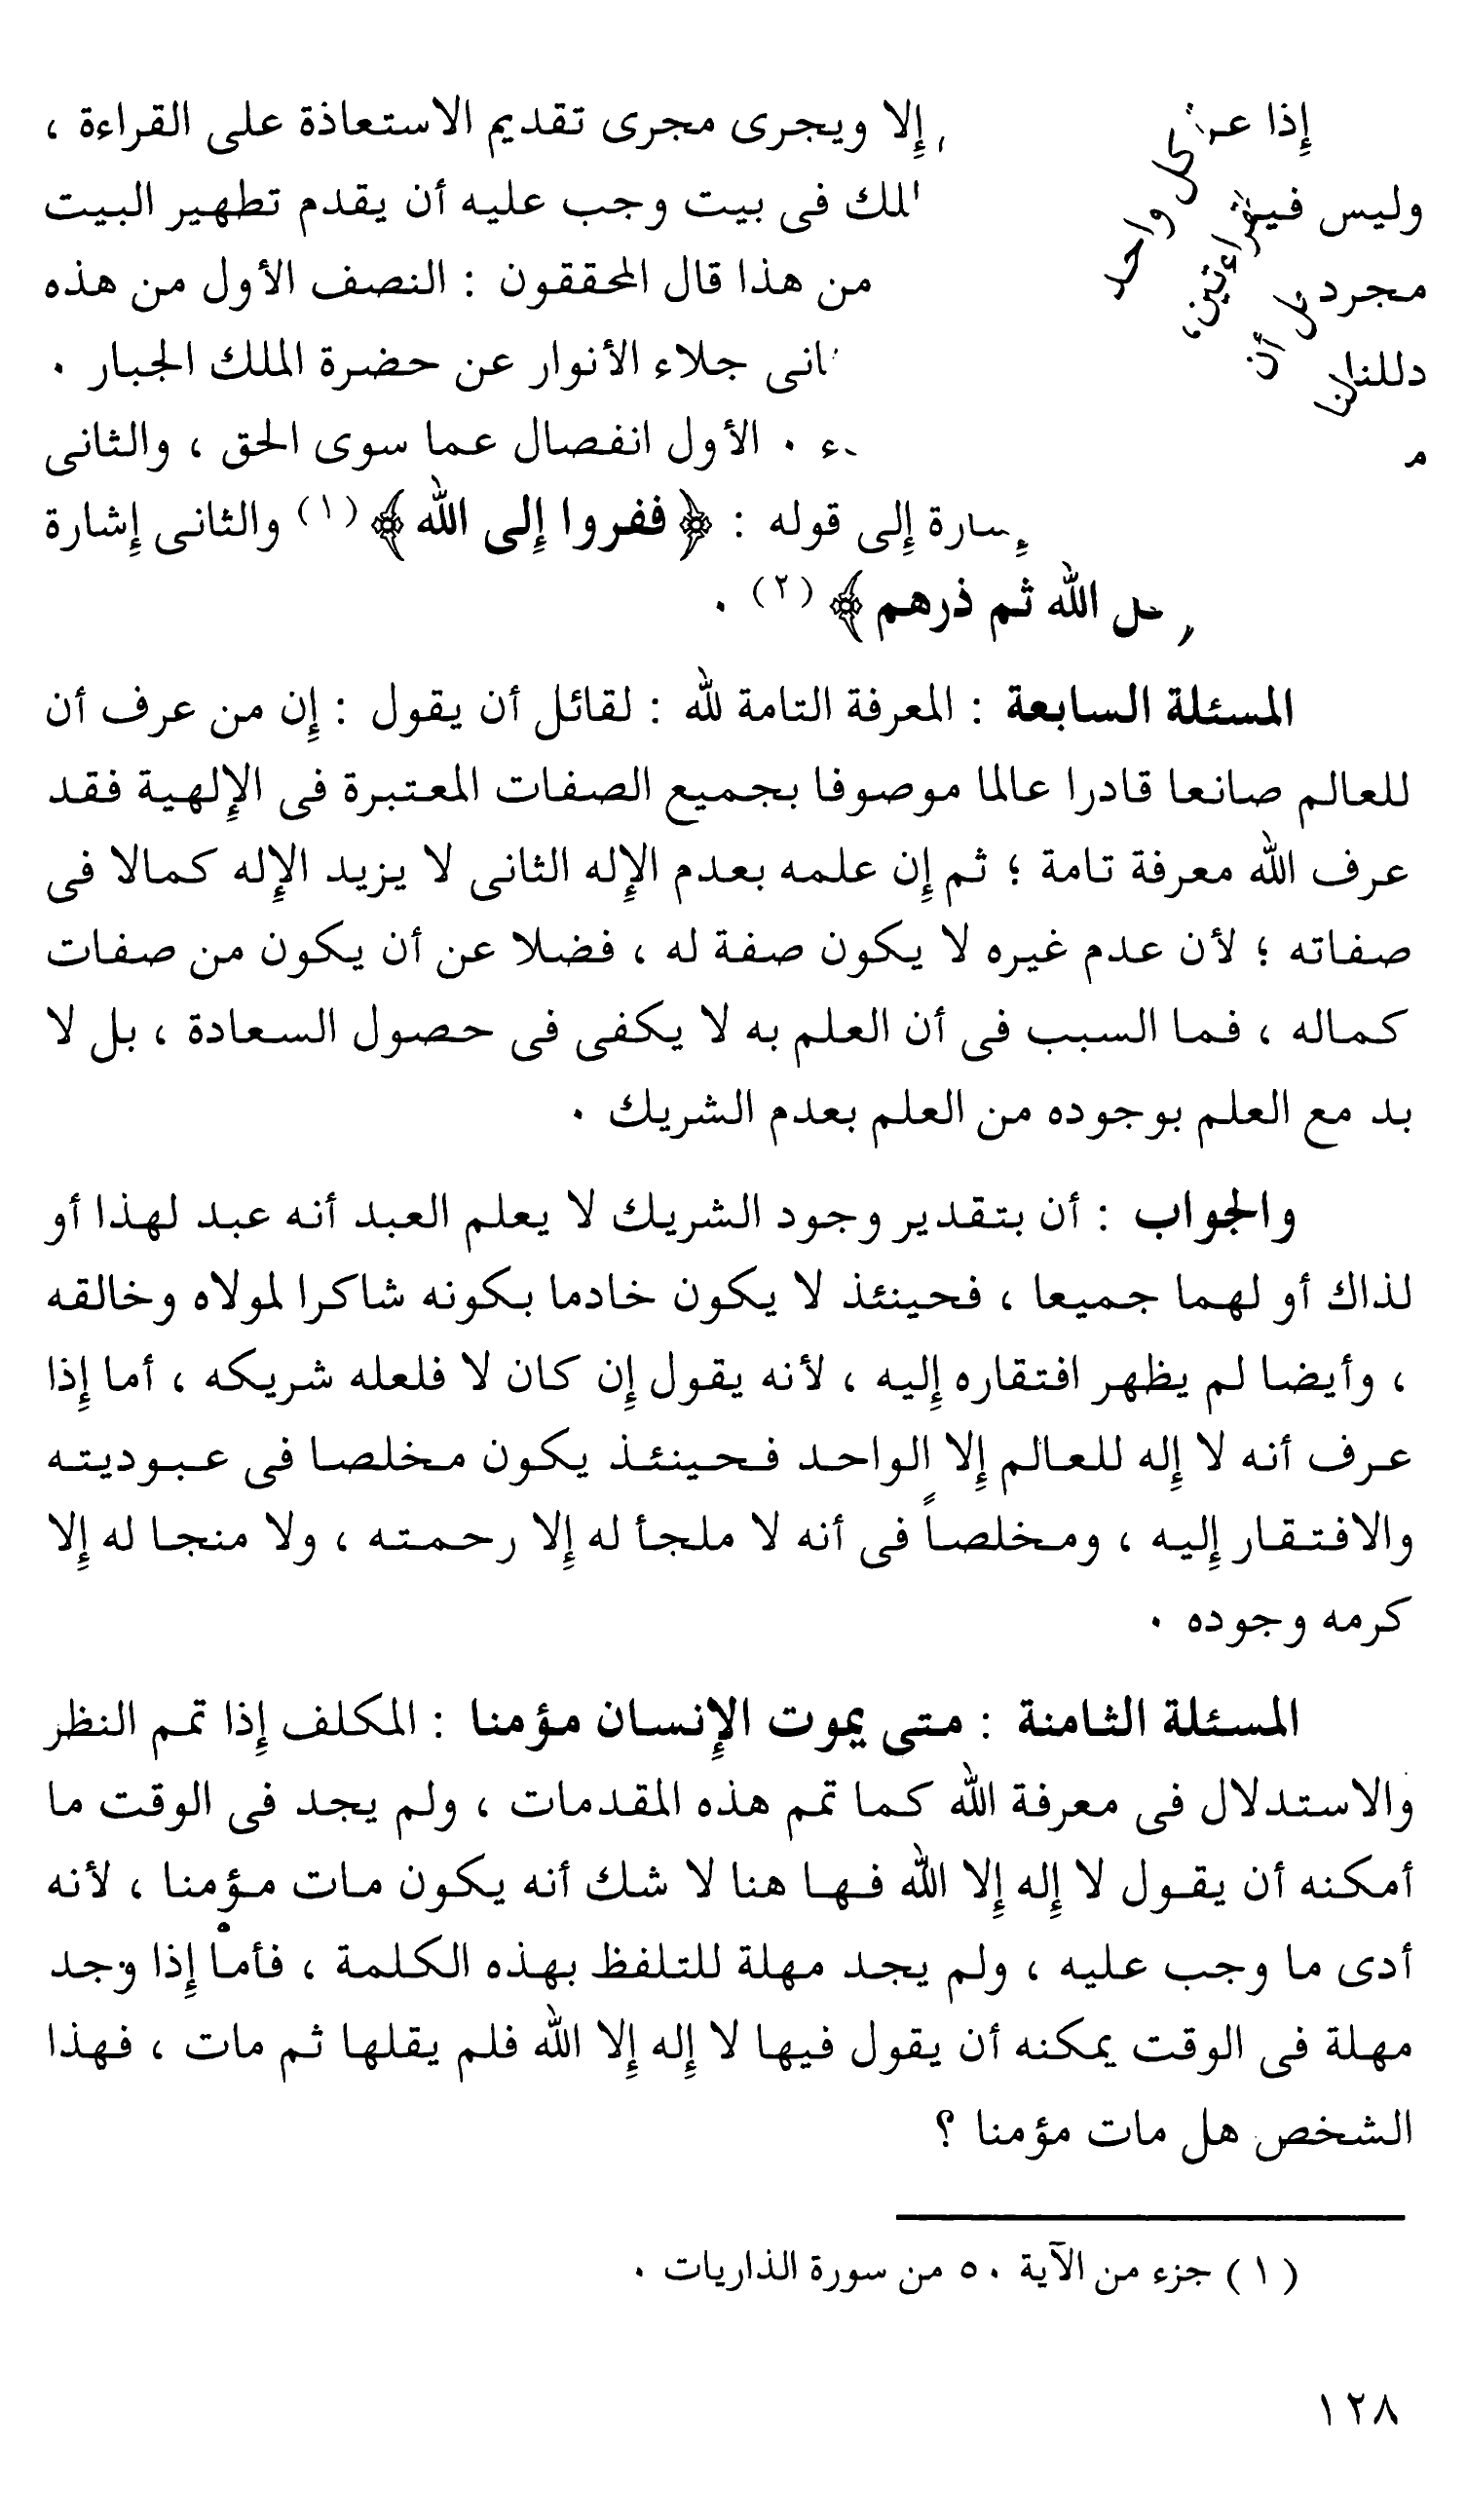 إذا إلا ويجرى مجرى تقديم الاستعاذة على القراءة ،
وليس فى بيت وجب عليه أن يقدم تطهير البيت
مجرد من هذا قال المحققون : النصف الأول من هذه
دللنا جلاء الأنوار عن حضرة الملك الجبار .
. الأول انفصال عما سوى الحق ، والثانى
إلى قوله : ﴿ففروا إلى الله﴾ (١) والثانى إشارة
الله ثم ذرهم﴾ (٢) .
المسئلة السابعة : المعرفة التامة لله : لقائل أن يقول : إن من عرف أن
للعالم صانعا قادرا عالما موصوفا بجميع الصفات المعتبرة فى الإلهية فقد
عرف الله معرفة تامة ؛ ثم إن علمه بعدم الإله الثانى لا يزيد الإله كمالا فى
صفاته ؛ لأن عدم غيره لا يكون صفة له ، فضلا عن أن يكون من صفات
كماله ، فما السبب فى أن العلم به لا يكفى فى حصول السعادة ، بل لا
بد مع العلم بوجوده من العلم بعدم الشريك .
والجواب : أن بتقدير وجود الشريك لا يعلم العبد أنه عبد لهذا أو
لذاك أو لهما جميعا ، فحينئذ لا يكون خادما بكونه شاكرا لمولاه وخالقه
، وأيضا لم يظهر افتقاره إليه ، لأنه يقول إن كان لا فلعله شريكه ، أما إذا
عرف أنه لا إله للعالم إلا الواحد فحينئذ يكون مخلصا فى عبوديته
والافتقار إليه ، ومخلصاً فى أنه لا ملجأ له إلا رحمته ، ولا منجا له إلا
كرمه وجوده .
المسئلة الثامنة : متى يموت الإنسان مؤمنا : المكلف إذا تمم النظر
والاستدلال فى معرفة الله كما تمم هذه المقدمات ، ولم يجد فى الوقت ما
أمكنه أن يقول لا إله إلا الله فها هنا لا شك أنه يكون مات مؤمنا ، لأنه
أدى ما وجب عليه ، ولم يجد مهلة للتلفظ بهذه الكلمة ، فأما إذا وجد
مهلة فى الوقت يمكنه أن يقول فيها لا إله إلا الله فلم يقلها ثم مات ، فهذا
الشخص هل مات مؤمنا ؟
(١) جزء من الآية ٥٠ من سورة الذاريات .
١٢٨